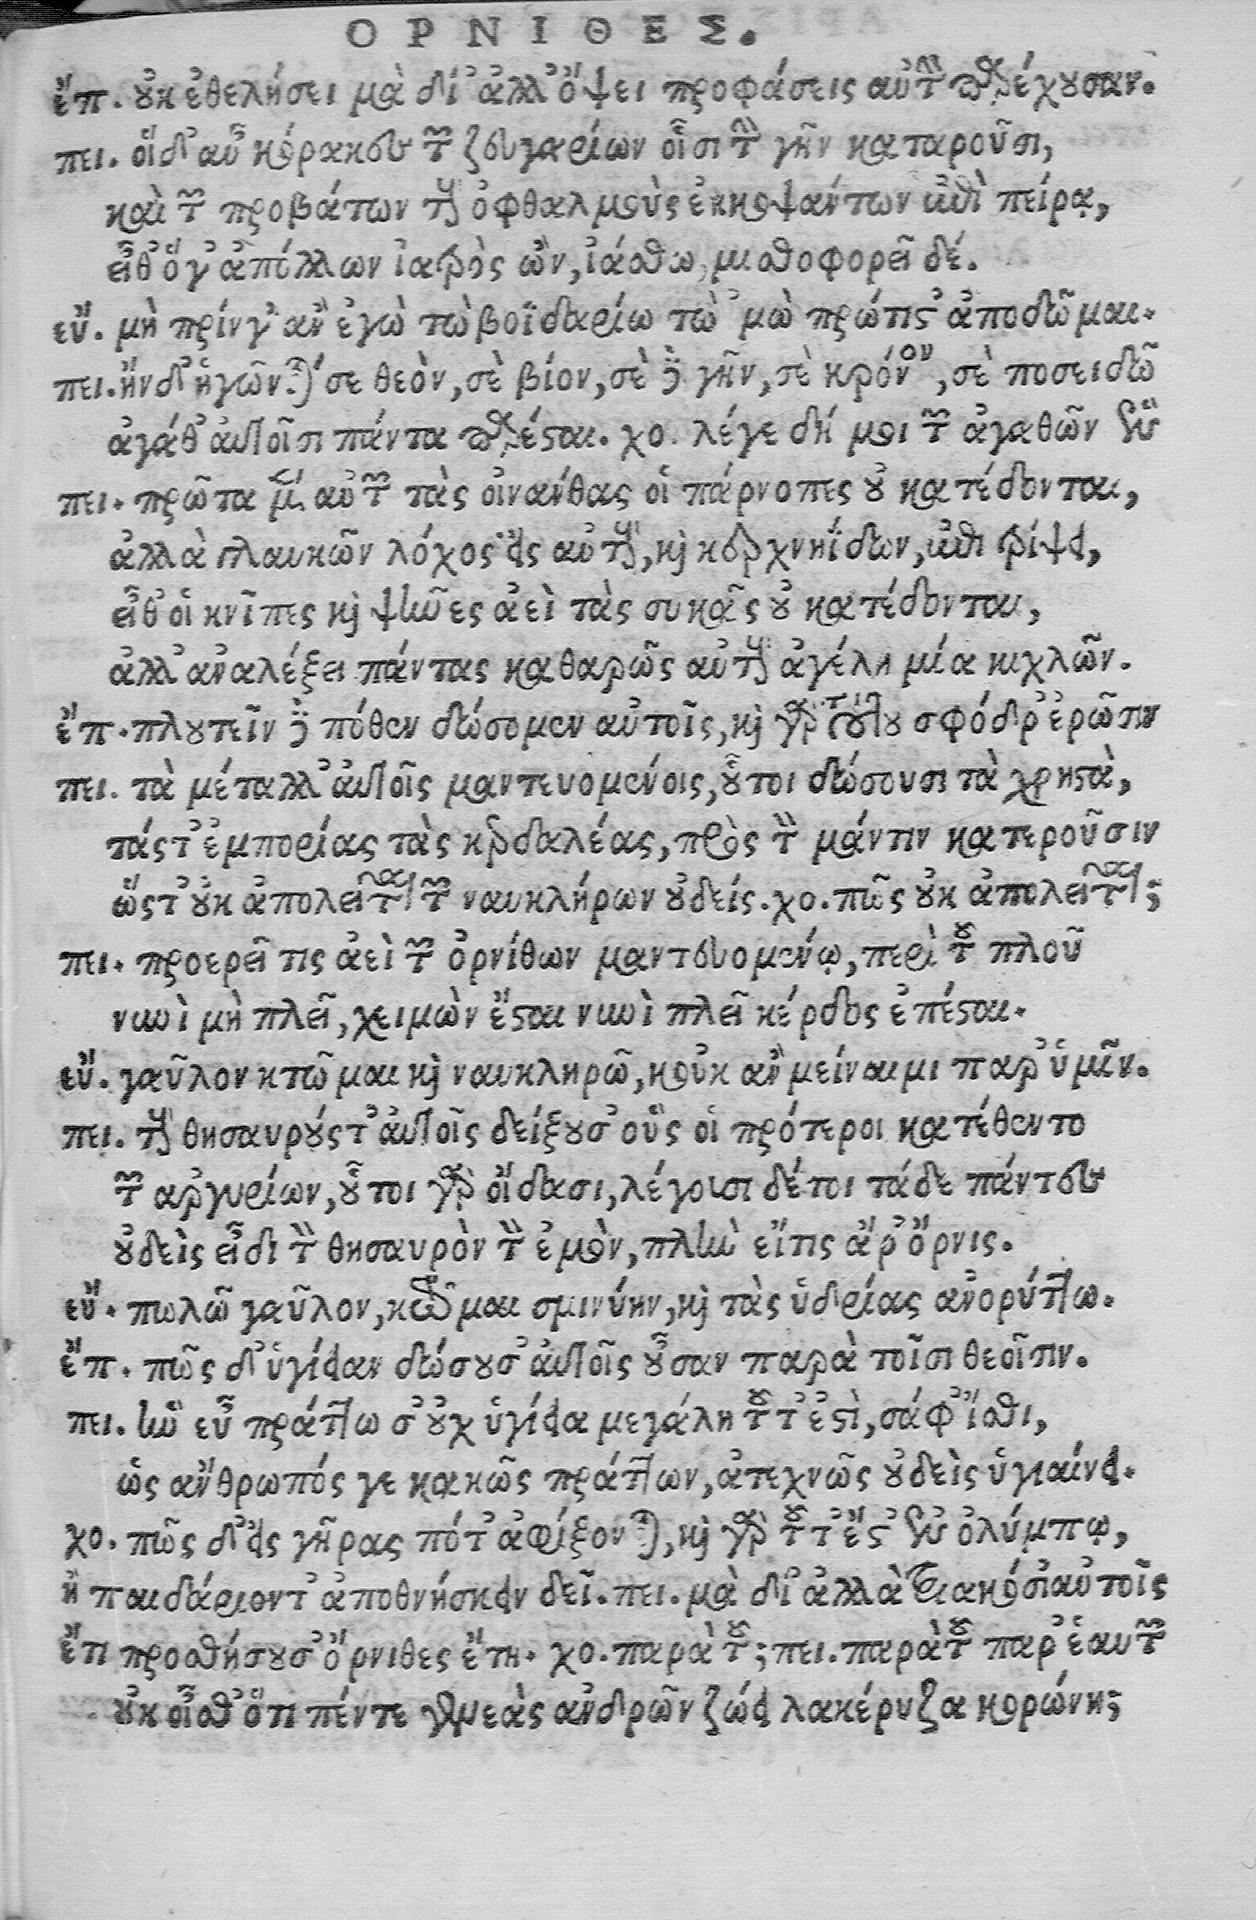 ΟΡΝΙΘΕΣ.
ἔπ. οὐκ ἐθελήσει μὰ δί' ἀλλ' ὄψει προφάσεις αὐτὴν παρέχουσαν.
πει. οἱ δ' αὖ κόρακες τῶν ζευγαρίων οἷσι τὴν γῆν καταροῦσι,
καὶ τῶν προβάτων τοὺς ὀφθαλμοὺς ἐκκοψάντων ἐπὶ πείρᾳ,
εἶθ' ὅγ' ἀπόλλων ἰατρὸς ὢν, ἰάσθω, μισθοφορεῖ δέ.
εὔ. μὴ πρίν γ' ἂν ἐγὼ τὼ βοϊδαρίω τὼ 'μὼ πρώτιστ' ἀποδῶμαι.
πει. ἢν δ' ἡγῶνται σε θεὸν, σὲ βίον, σὲ δὲ γῆν, σὲ κρόνον, σὲ ποσειδῶ
ἀγάθ' αὐτοῖσι πάντα παρέσται. χο. λέγε δή μοι τῶν ἀγαθῶν ἓν
πει. πρῶτα μὲν αὐτῶν τὰς οἰνάνθας οἱ πάρνοπες οὐ κατέδονται,
ἀλλὰ γλαυκῶν λόχος εἷς αὐτοὺς, καὶ κερχνηΐδων, ἐπιτρίψει,
εἶθ' οἱ κνῖπες καὶ ψῆνες ἀεὶ τὰς συκᾶς οὐ κατέδονται,
ἀλλ' ἀναλέξει πάντας καθαρῶς αὐτοὺς ἀγέλη μία κιχλῶν.
ἔπ. πλουτεῖν δὲ πόθεν δώσομεν αὐτοῖς, καὶ γὰρ τούτου σφόδρ' ἐρῶσιν
πει. τὰ μέταλλ' αὐτοῖς μαντευομένοις, οὗτοι δώσουσι τὰ χρηστὰ,
τάς τ' ἐμπορίας τὰς κερδαλέας, πρὸς τὸν μάντιν κατεροῦσιν
ὥστ' οὐκ ἀπολεῖται τῶν ναυκλήρων οὐδείς. χο. πῶς οὐκ ἀπολεῖται;
πει. προερεῖ τις ἀεὶ τῶν ὀρνίθων μαντευομένῳ, περὶ τοῦ πλοῦ
νυνὶ μὴ πλεῖ, χειμὼν ἔσται νυνὶ πλεῖ κέρδος ἐπέσται.
εὔ. γαῦλον κτῶμαι καὶ ναυκληρῶ, κοὐκ ἂν μείναιμι παρ' ὑμῖν.
πει. τοὺς θησαυρούς τ' αὐτοῖς δείξουσ' οὓς οἱ πρότεροι κατέθεντο
τῶν ἀργυρίων, οὗτοι γὰρ οἴδασι, λέγουσι δέ τοι τάδε πάντες
οὐδεὶς εἶδι τὸν θησαυρὸν τὸν ἐμὸν, πλὴν εἴτις ἄρ' ὄρνις.
εὔ. πωλῶ γαῦλον, κτῶμαι σμινύην, καὶ τὰς ὑδρίας ἀνορύττω.
ἔπ. πῶς δ' ὑγίειαν δώσουσ' αὐτοῖς οὖσαν παρὰ τοῖσι θεοῖσιν.
πει. ἢν εὖ πράττωσ' οὐχ ὑγίεια μεγάλη τοῦτ' ἐστὶ, σάφ' ἴσθι,
ὡς ἄνθρωπός γε κακῶς πράττων, ἀτεχνῶς οὐδεὶς ὑγιαίνει.
χο. πῶς δ' εἰς γῆρας πότ' ἀφίξονται, καὶ γὰρ τοῦτ' ἔστ' ἐν ὀλύμπῳ,
ἢ παιδάριοντ' ἀποθνήσκειν δεῖ. πει. μὰ δί' ἀλλὰ τριακόσι' αὐτοῖς
ἔτι προσθήσουσ' ὄρνιθες ἔτη. χο. παρὰ τοῦ; πει. παρὰ τοῦ παρ' ἑαυτῶν
οὐκ οἶσθ' ὅτι πέντε γενεὰς ἀνδρῶν ζώει λακέρυζα κορώνη;